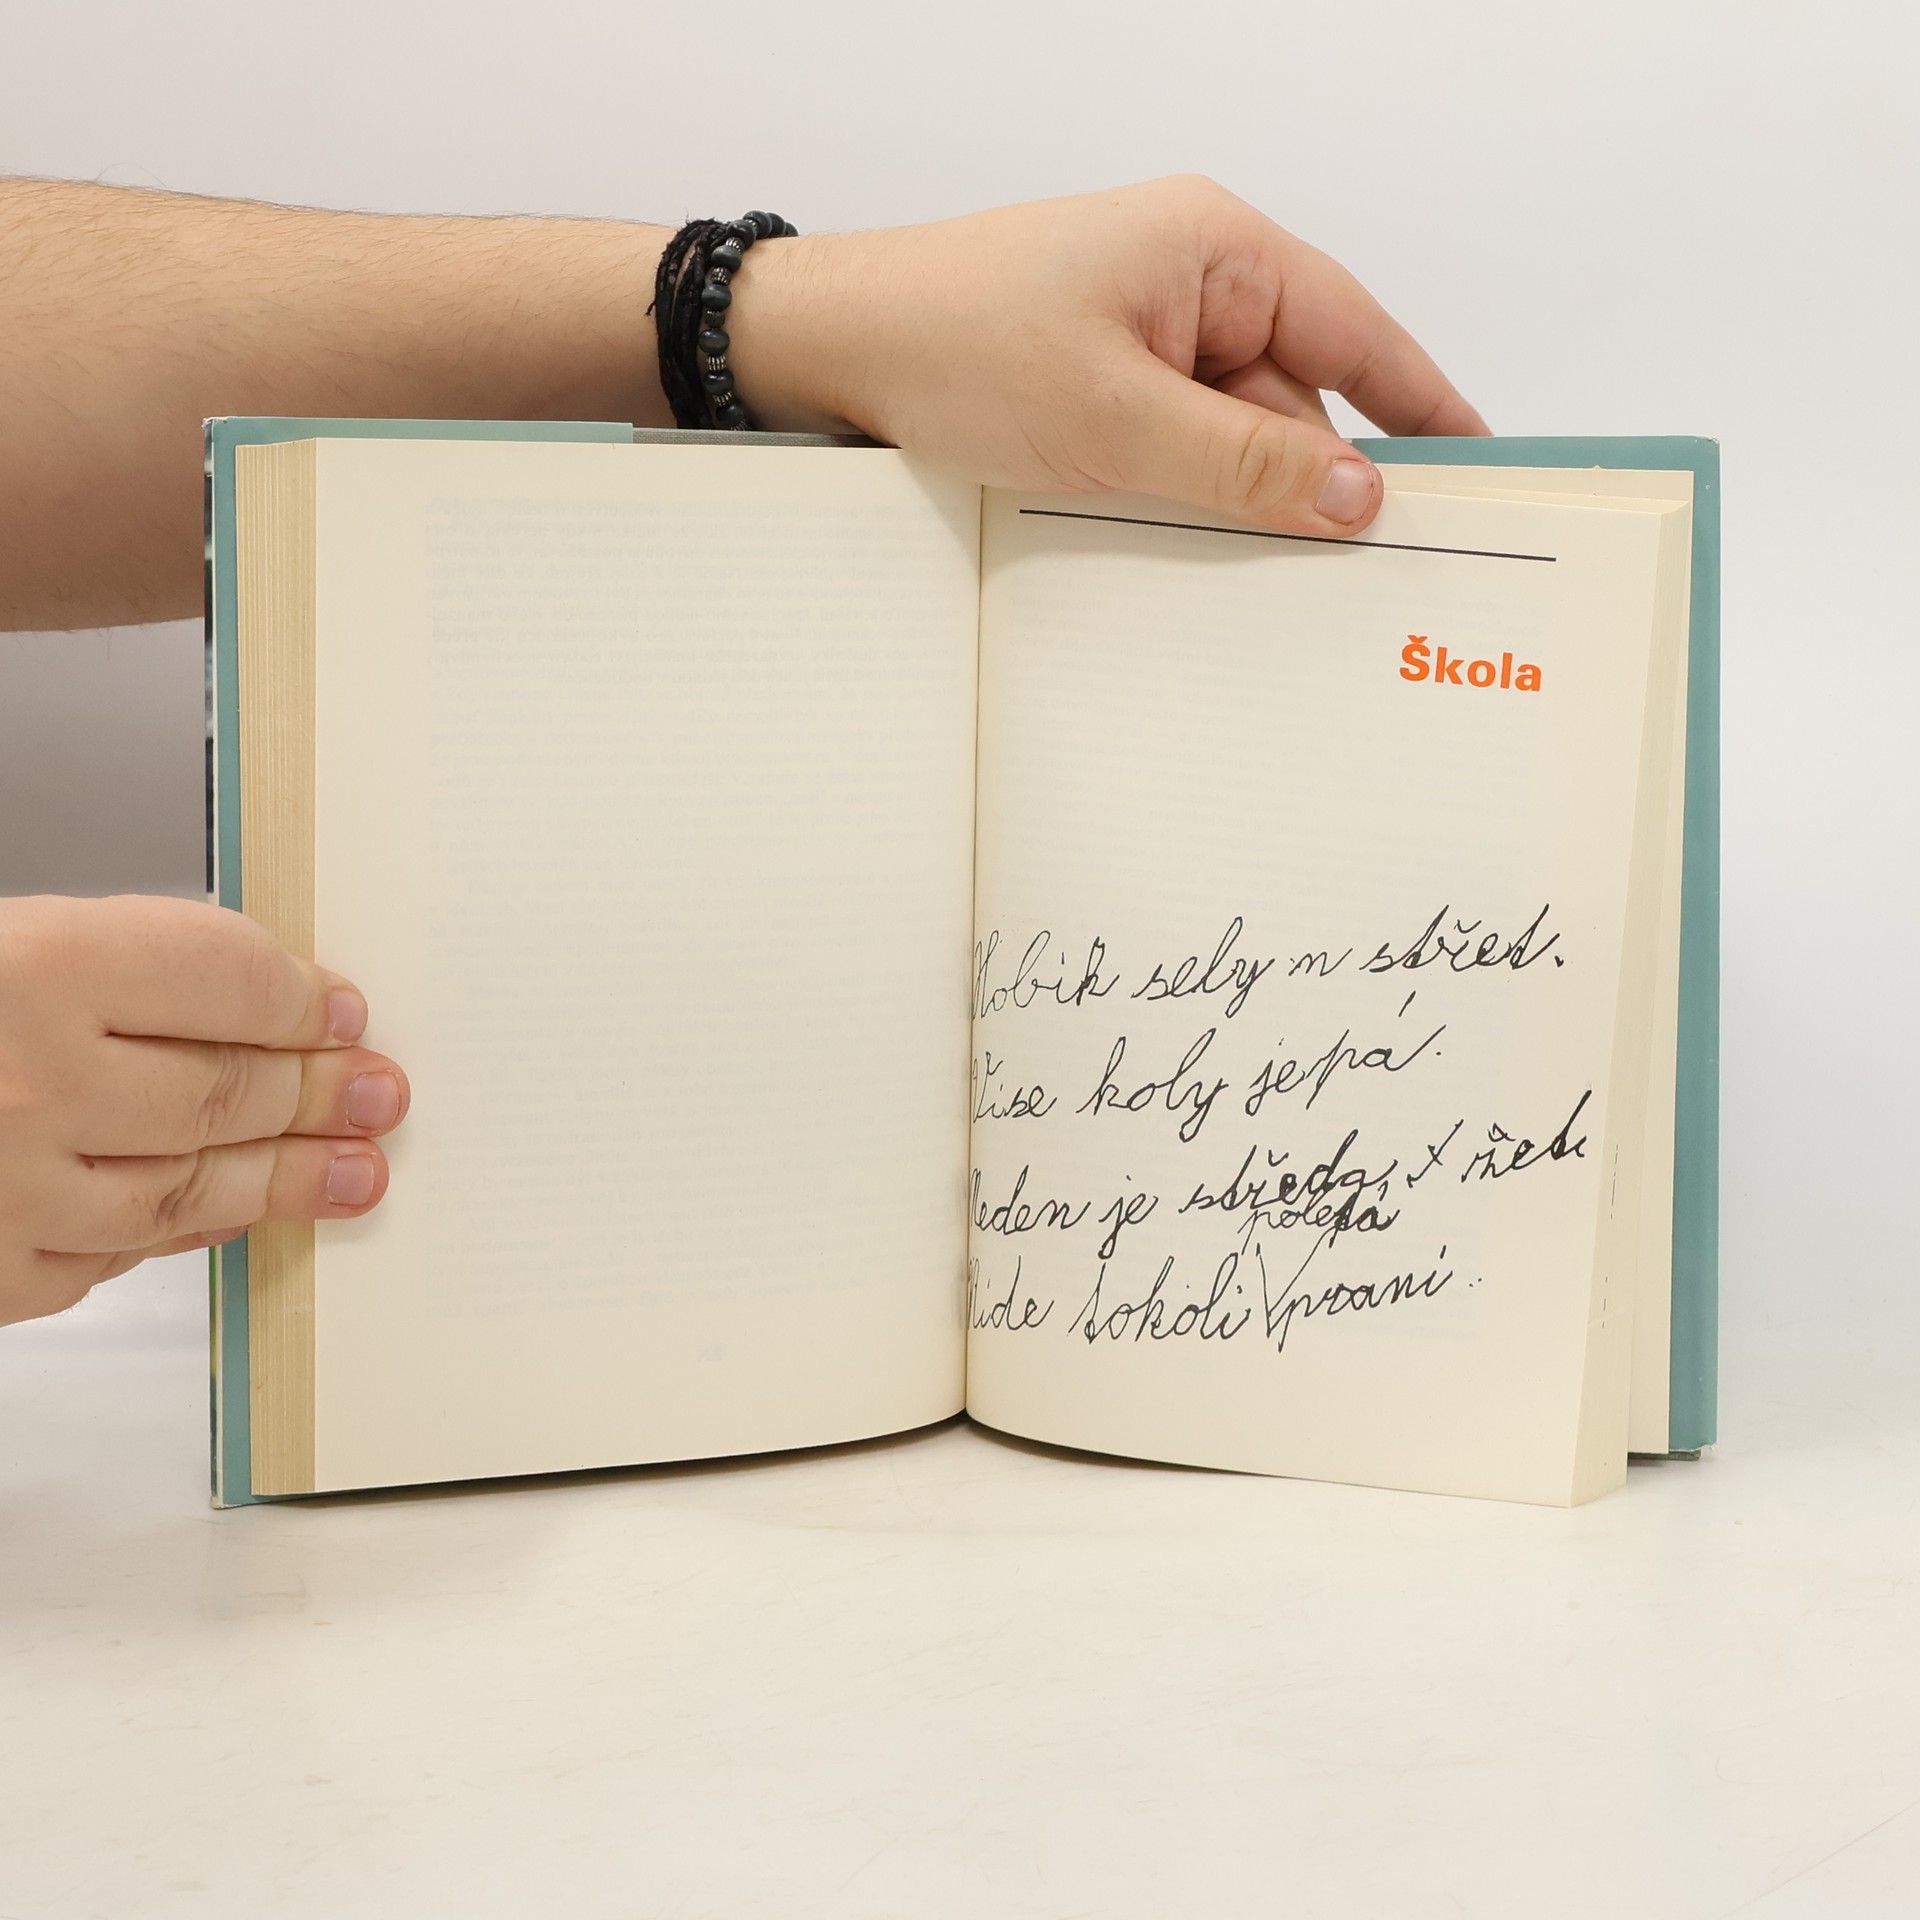 Škola
Hobik sely m střet.
Více koly jepá.
Neden je středa, 
poletá
Nide tokoli praní.